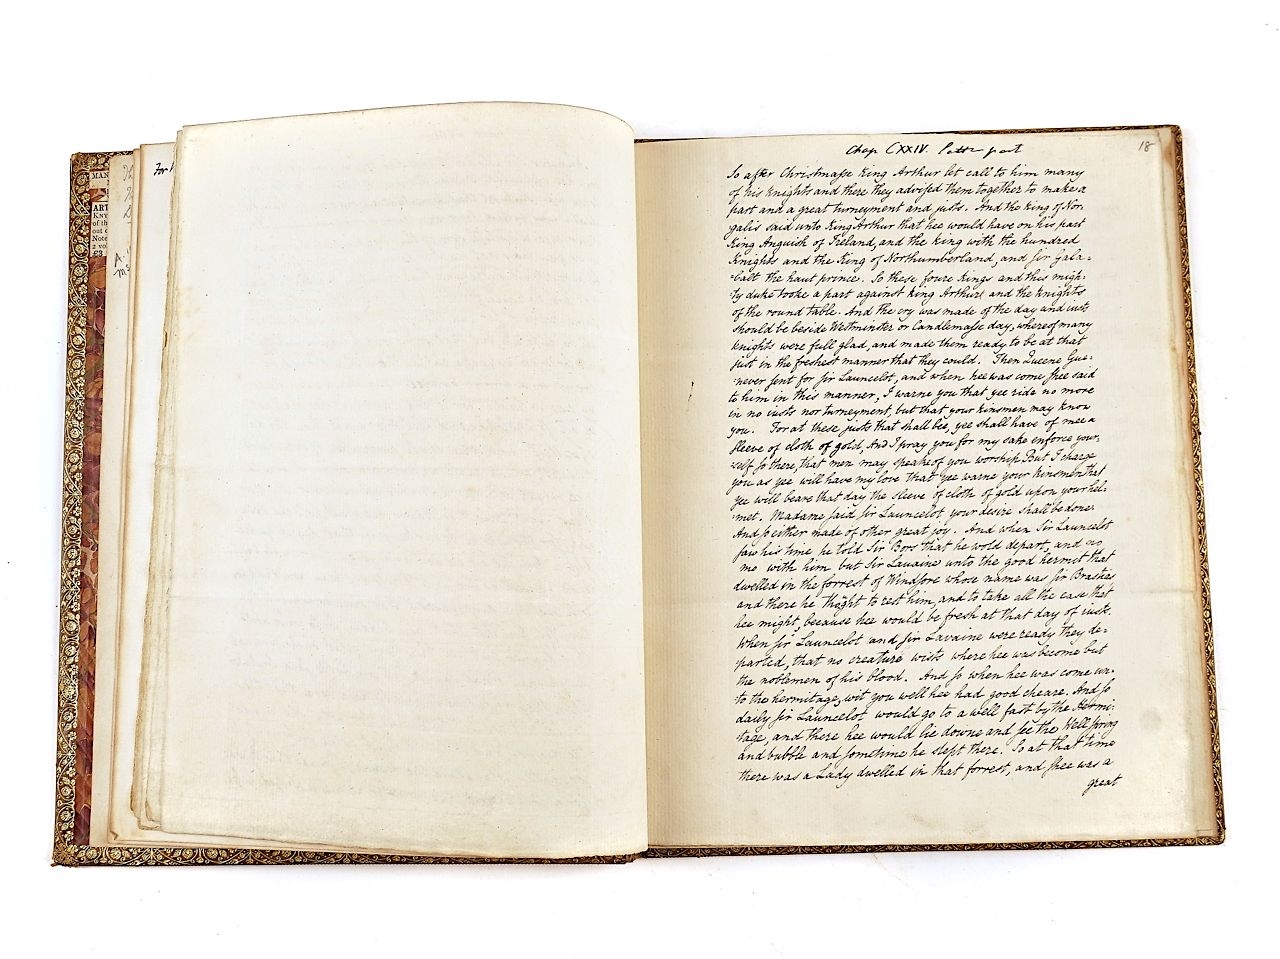 MAN
ART
KNY
of th
out o
Note
2 vol
£3
For
18
Chap CXXIV. Patte part
So after Christmasse King Arthur let call to him many
of his knights and there they advised them together to make a
part and a great turneyment and justs. And the King of Nor-
galis said unto King Arthur that hee would have on his part
King Anguish of Ireland, and the king with the hundred
Knights and the King of Northumberland, and sir Gala-
-halt the haut prince. So these foure Kings and this migh-
ty duke tooke a part against King Arthur and the Knights
of the round table. And the cry was made of the day and justs
should be beside Westminster or Candlemasse day, whereof many
Knights were full glad, and made them ready to be at that
just in the freshest manner that they could. Then Queene Gue-
never sent for sir Launcelot, and when hee was come shee said
to him in this manner, I warne you that yee ride no more
in no justs nor turneyment, but that your kinsmen may know
you. For at these justs that shall bee, yee shall have of mee a
sleeve of cloth of gold, And I pray you for my sake enforce your
self so there, that men may speake of you worship, But I charge
you as yee will have my love that yee warne your kinsmen that
yee will beare that day the sleeve of cloth of gold upon your hel-
met. Madame said sir Launcelot your desire shall be done.
And so either made of other great joy. And when Sir Launcelot
saw his time he told Sir Bors that he wold depart, and no
mo with him but Sir Lavaine unto the good hermit that
dwelled in the forrest of Windsore whose name was sir Brastias
and there he thought to rest him, and to take all the ease that
hee might, because hee would be fresh at that day of just.
When sir Launcelot and sir Lavaine were ready they de-
parted, that no creature wists where hee was become but
the noblemen of his blood. And so when hee was come un-
to the hermitage, wit you well hee had good cheare. And so
daily sir Launcelot would go to a well fast by the Hermi-
tage, and there hee would lie downe and see the Well spring
and bubble and somtime he slept there. So at that time
there was a Lady dwelled in that forrest, and shee was a
great